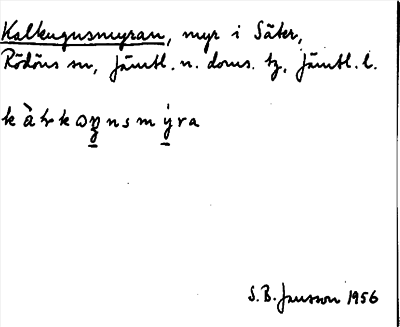 Kalkugnsmyran, myr i Säter,
Rödöns sn, Jämtl. n. doms. tg, Jämtl. l.
S. B. Jansson 1956